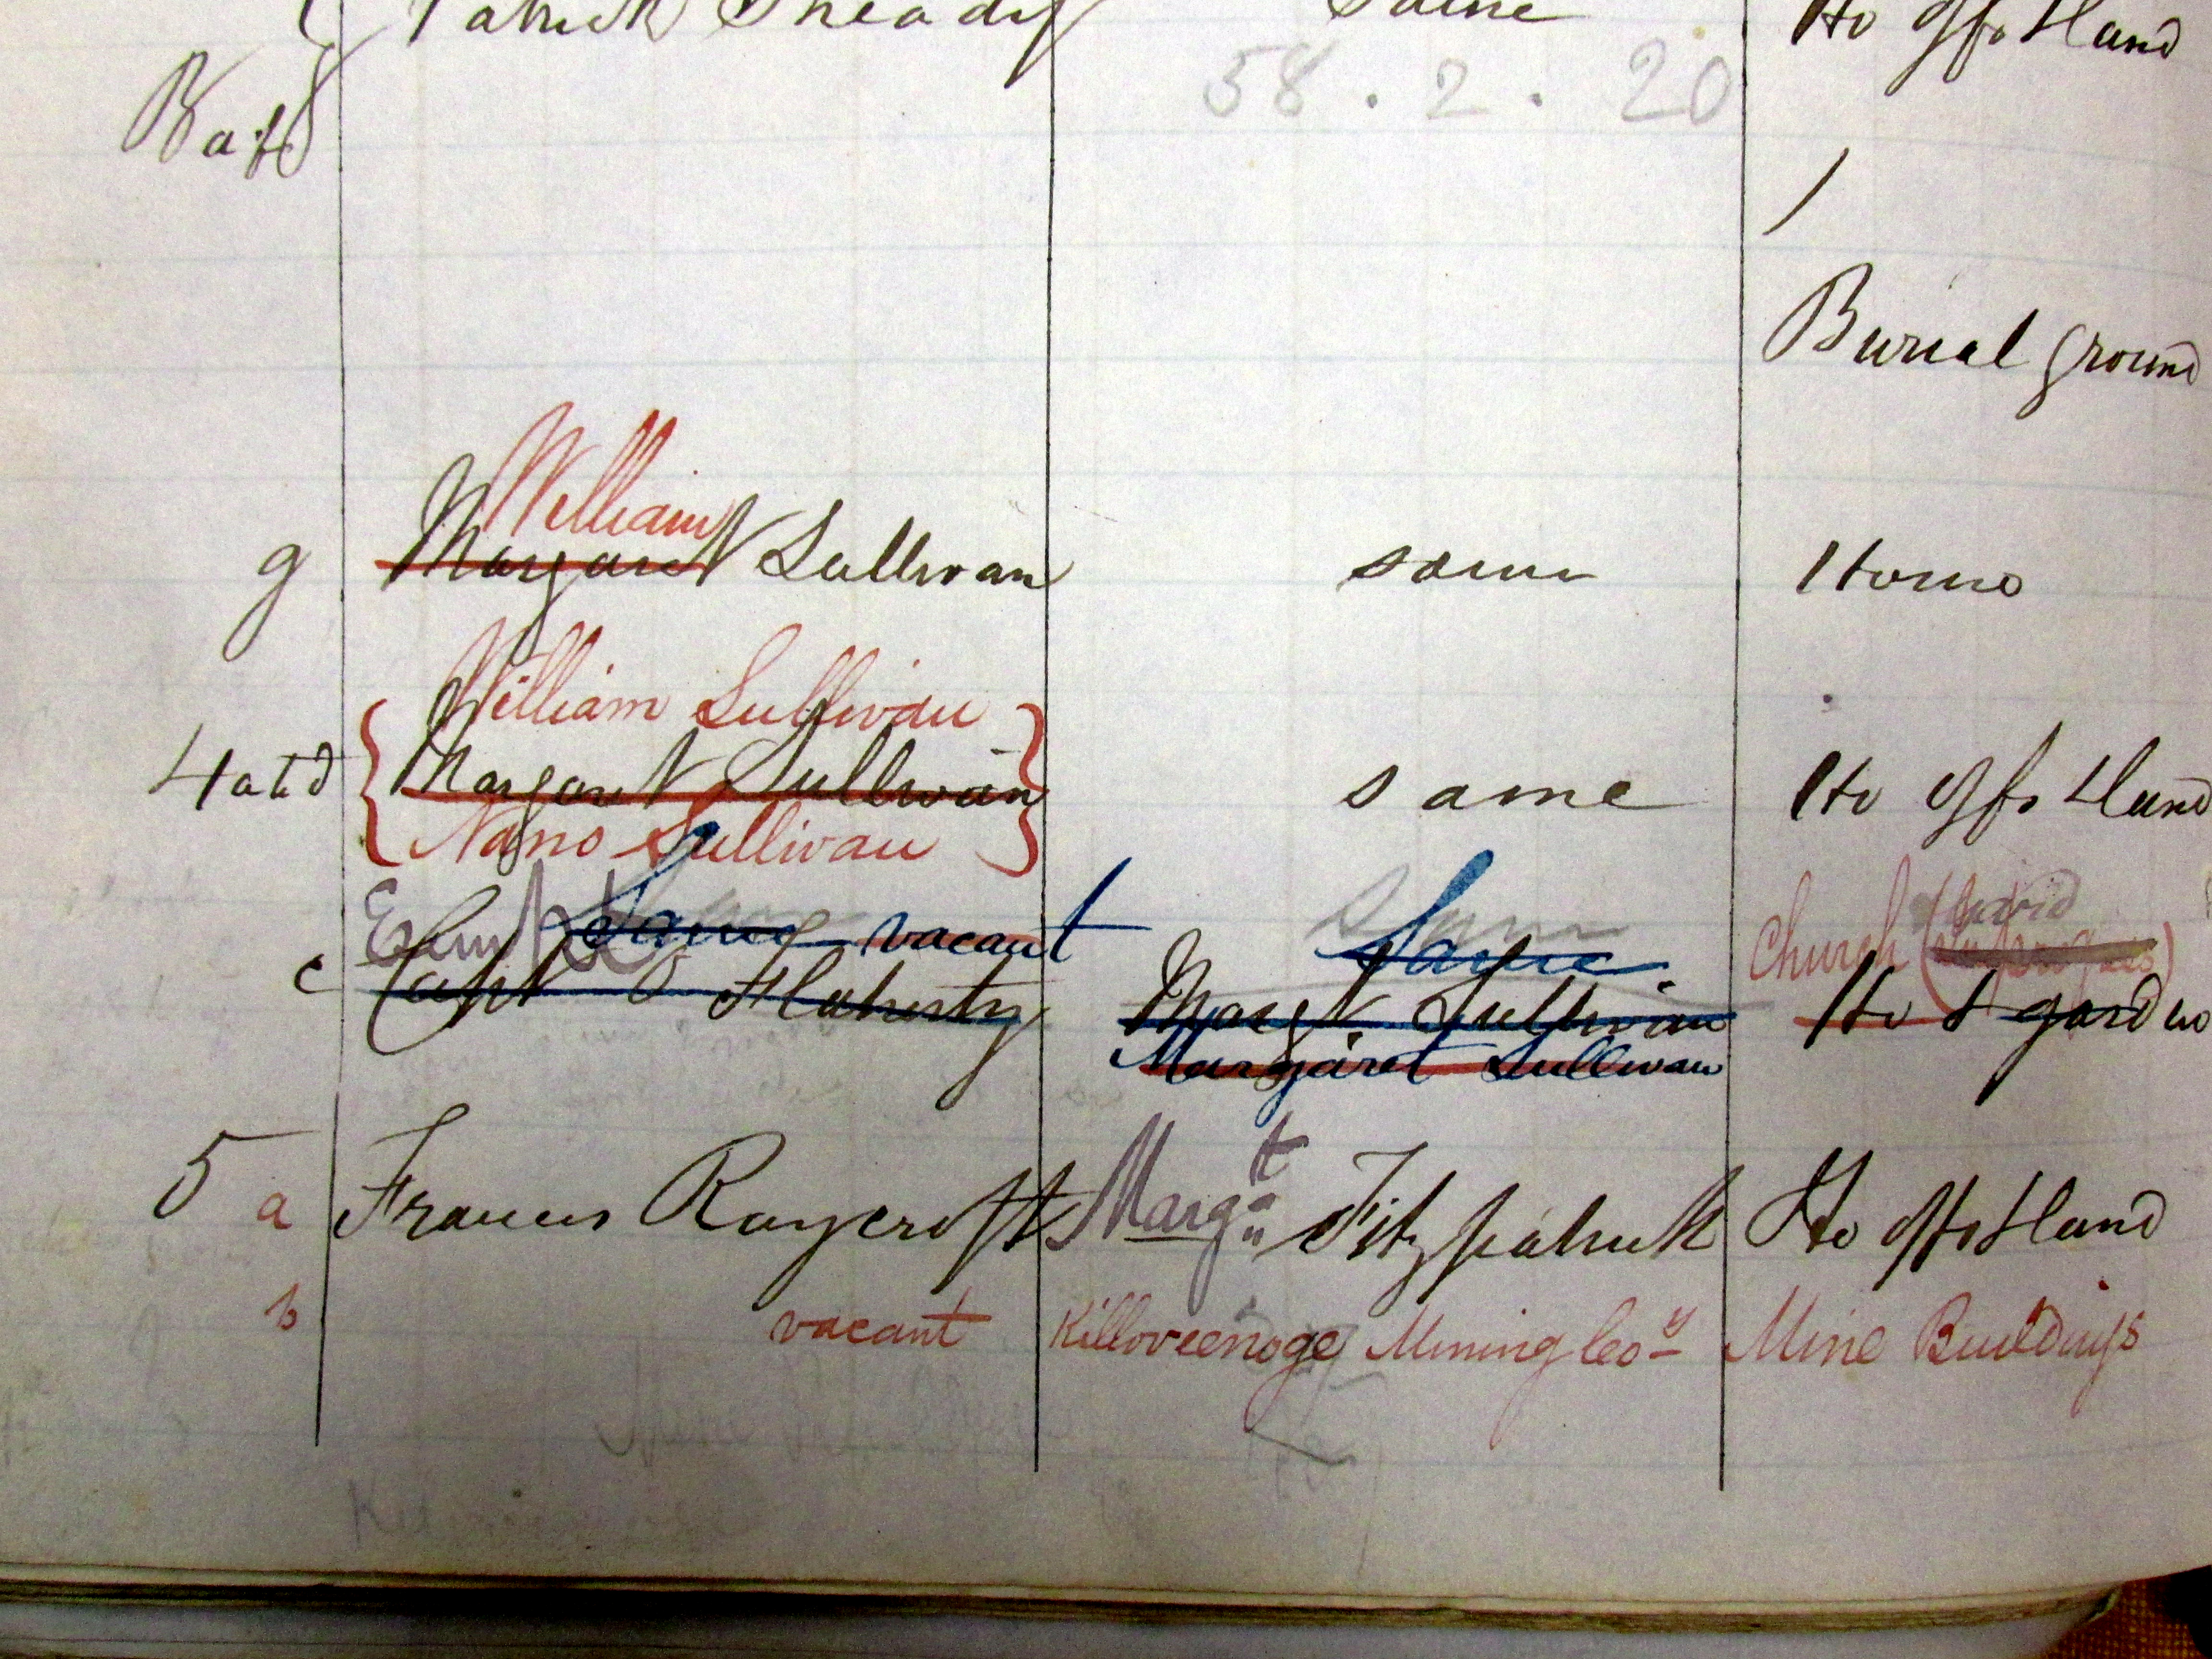 Patrick Sheady same Ho offs & land
58 . 2 . 20
Burial ground
William
g Margaret Sullivan same House
William Sullivan
4 a & d Margaret Sullivan same Ho offs & land
Nano Sullivan
Same vacant Same Church
c Capt O Flaherty Margt Sullivan Ho & garden
Margaret Sullivan
5 a Francis Roycroft Margt Fitzpatrick Ho offs & land
b vacant Killoveenoge Mining Coy Mine Buildings